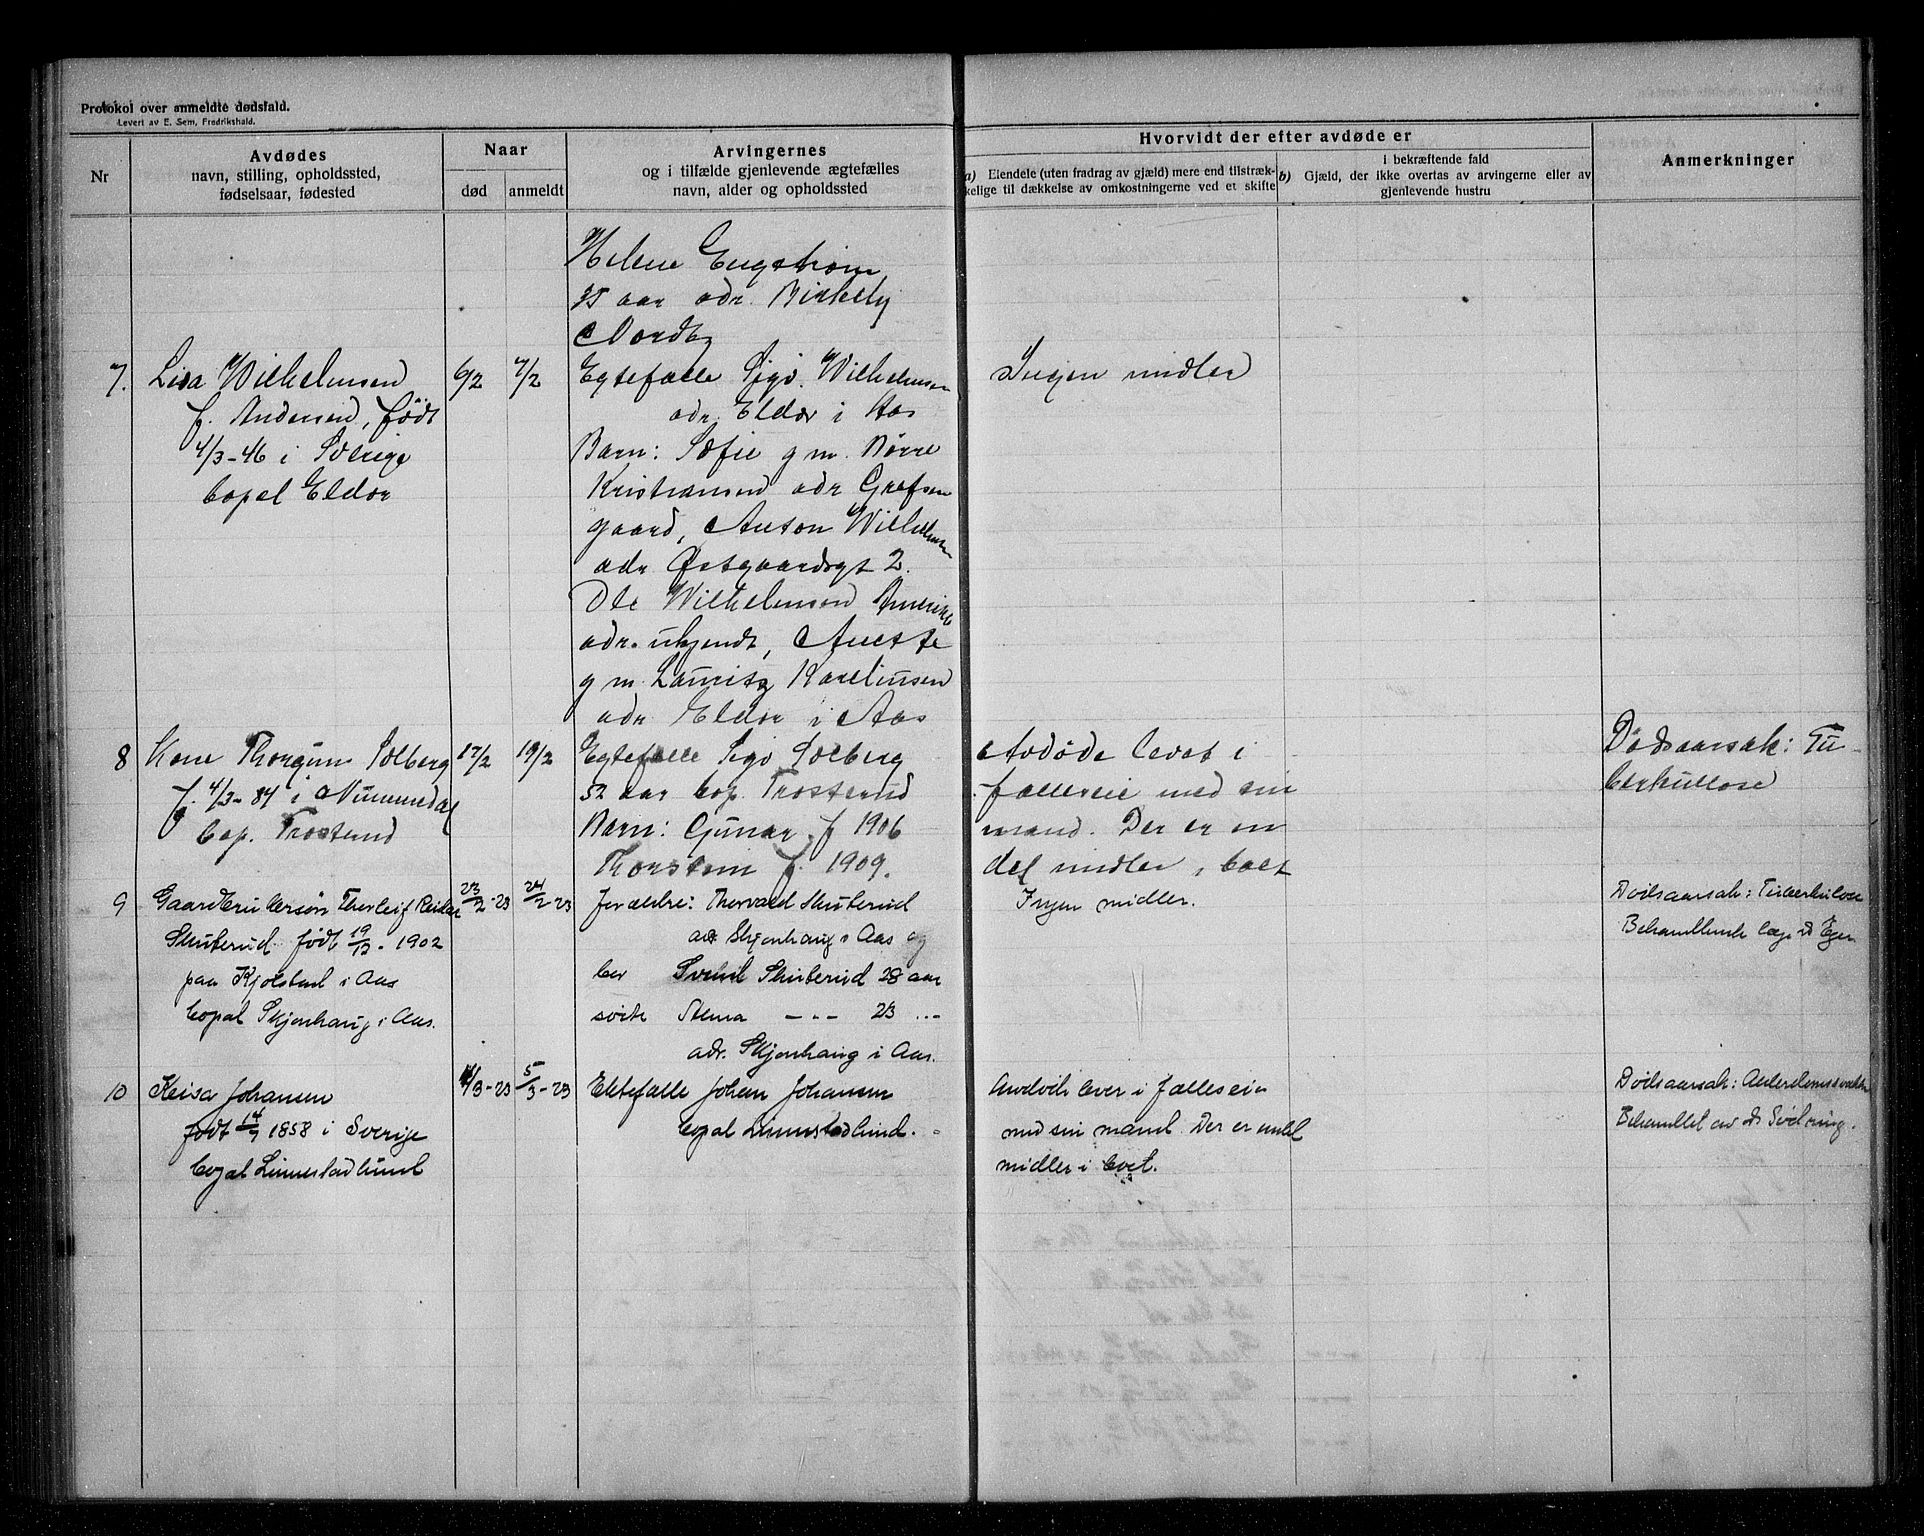 Protokol over anmeldte dødsfald.
Levert av E. Sem, Fredrikshald.
Nr
Avdødes
navn, stilling, opholdssted,
fødselsaar, fødested
Naar
død
anmeldt
Arvingernes
og i tilfælde gjenlevende ægtefælles
navn, alder og opholdssted
Hvorvidt der efter avdøde er
a) Eiendele (uten fradrag av gjæld) mere end tilstræk-
kelige til dækkelse av omkostningerne ved et skifte
i bekræftende fald
b) Gjæld, der ikke overtas av arvingerne eller av
gjenlevende hustru
Anmerkninger
Helene Engstrøm
35 aar adr. Birkely
Nordby
7.
Lisa Wilhelmsen
f. Andersen, født
4/3-46 i Sverige
bopel Eldor
6/2
7/2
Egtefælle Sigv. Wilhelmsen
adr. Eldor i Aas
Barn: Sofie g m. Børre
Kristiansen adr Grefsen
gaard, Anton Wilhelmsen
adr Østgaardsgt 2.
Ole Wilhelmsen Amerika
adr. ukjendt, Anette
g m. Lauritz Karelinsen
adr Eldor i Aas
Ingen midler
8
Kone Thorgunn Solberg
f. 4/3-84 i Nummedal
bop. Trosterud
17/2
19/2
Egtefælle Sigv Solberg
52 aar bop. Trosterud
Barn: Gunar f 1906
Thorstein f. 1909.
Avdøde levet i
fælleseie med sin
mand. Der er en
del midler i boet
Dødsaarsak: Tu-
berkullose
9
Gaardbrukersøn Thorleif Reidar
Skuterud født 19/12-1902
paa Kjølstad i Aas
bopæl Skjonhaug i Aas.
23/2-23
24/2-23
Forældre: Thorvald Skuterud
adr Skjonhaug i Aas og
bror Svend Skuterud 28 aar
søster Alma -"- 23 -"-
adr. Skjonhaug i Aas.
Ingen midler.
Dødsaarsak: Tuberkulose
Behandlende læge Dr Eger
10
Keisa Johansen
født 14/7 1858 i Sverige
bopæl Linnestadlund
4/3-23
5/3-23
Ektefælle Johan Johansen
bopæl Linnestadlund.
Avdøde lever i fælleseie
med sin mand. Der er endel
midler i boet.
Dødsaarsak: Alderdomssvakhet
Behandlet av Dr Sødring.